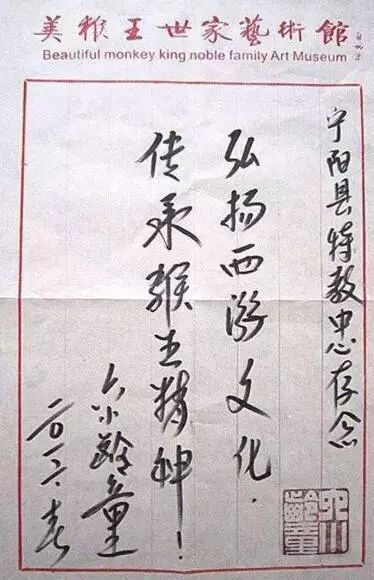 美猴王世家藝術館
Beautiful monkey king noble family Art Museum
宁阳县特教中心存念
弘扬西游文化.
传承猴王精神!
六小龄童
二〇一六.春
六小齡童